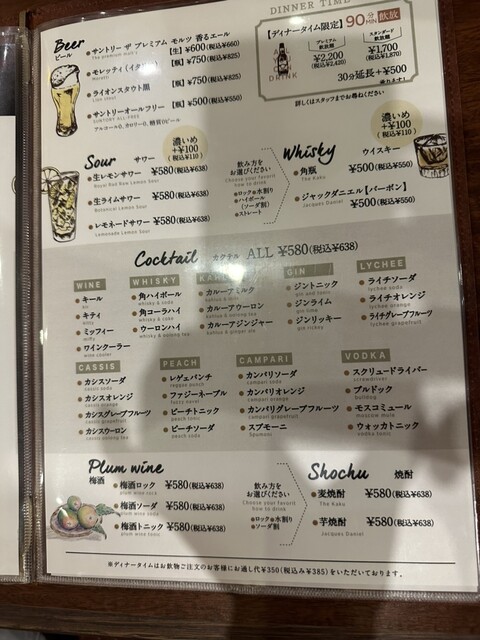 DINNER TIME
Beer
ビール
サントリー ザ プレミアム モルツ 香るエール 【生】¥600(税込¥660)
The premium malt's
モレッティ(イタリア) 【瓶】¥750(税込¥825)
Moretti
ライオンスタウト黒 【瓶】¥750(税込¥825)
Lion stout
サントリーオールフリー 【瓶】¥500(税込¥550)
SUNTORY ALL-FREE
アルコール0、カロリー0、糖質0ビール
【ディナータイム限定】90分飲放
MIN
DRINK
プレミアム飲放題
¥2,200
(税込¥2,420)
スタンダード飲放題
¥1,700
(税込¥1,870)
30分延長+¥500
詳しくはスタッフまでお尋ねください
濃いめ
+¥100
(税込¥110)
Sour サワー
生レモンサワー ¥580(税込¥638)
Royal Red Raw Lemon Sour
生ライムサワー ¥580(税込¥638)
Botanical Lemon Sour
レモネードサワー ¥580(税込¥638)
Lemonade Lemon Sour
飲み方を
お選びください
Choose your favorite
how to drink
ロック 水割り
ハイボール
(ソーダ割)
ストレート
濃いめ
+¥100
(税込¥110)
Whisky ウイスキー
角瓶 ¥500(税込¥550)
The Kaku
ジャックダニエル【バーボン】
Jacques Daniel
¥500(税込¥550)
Cocktail カクテル ALL ¥580(税込¥638)
WINE
キール
キティ
kitty
ミッフィー
miffy
ワインクーラー
wine cooler
WHISKY
角ハイボール
whisky & soda
角コーラハイ
whisky & coke
ウーロンハイ
whisky & oolong tea
カルーアミルク
kahlua & milk
カルーアウーロン
kahlua & oolong tea
カルーアジンジャー
kahlua & ginger ale
GIN
ジントニック
gin and tonic
ジンライム
gin lime
ジンリッキー
gin rickey
LYCHEE
ライチソーダ
lychee soda
ライチオレンジ
lychee orange
ライチグレープフルーツ
lychee grapefruit
CASSIS
カシスソーダ
cassis soda
カシスオレンジ
cassis orange
カシスグレープフルーツ
cassis grapefruit
カシスウーロン
cassis oolong tea
PEACH
レゲェパンチ
reggae punch
ファジーネーブル
fuzzy navel
ピーチトニック
peach tonic
ピーチソーダ
peach soda
CAMPARI
カンパリソーダ
campari soda
カンパリオレンジ
campari orange
カンパリグレープフルーツ
campari grapefruit
スプモーニ
Spumoni
VODKA
スクリュードライバー
screwdriver
ブルドック
bulldog
モスコミュール
moscow mule
ウォッカトニック
vodka tonic
Plum wine
梅酒
梅酒ロック ¥580(税込¥638)
plum wine rock
梅酒ソーダ ¥580(税込¥638)
plum wine soda
梅酒トニック ¥580(税込¥638)
plum wine tonic
飲み方を
お選びください
Choose your favorite
how to drink
ロック 水割り
ソーダ割
Shochu 焼酎
麦焼酎 ¥580(税込¥638)
The Kaku
芋焼酎 ¥580(税込¥638)
Jacques Daniel
※ディナータイムはお飲物ご注文のお客様にお通し代¥350(税込み¥385)をいただいております。